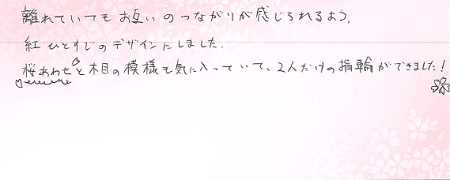 離れていてもお互いのつながりが感じられるよう、
紅ひとすじのデザインにしました。
桜あわせと木目の模様も気に入っていて、2人だけの指輪ができました!